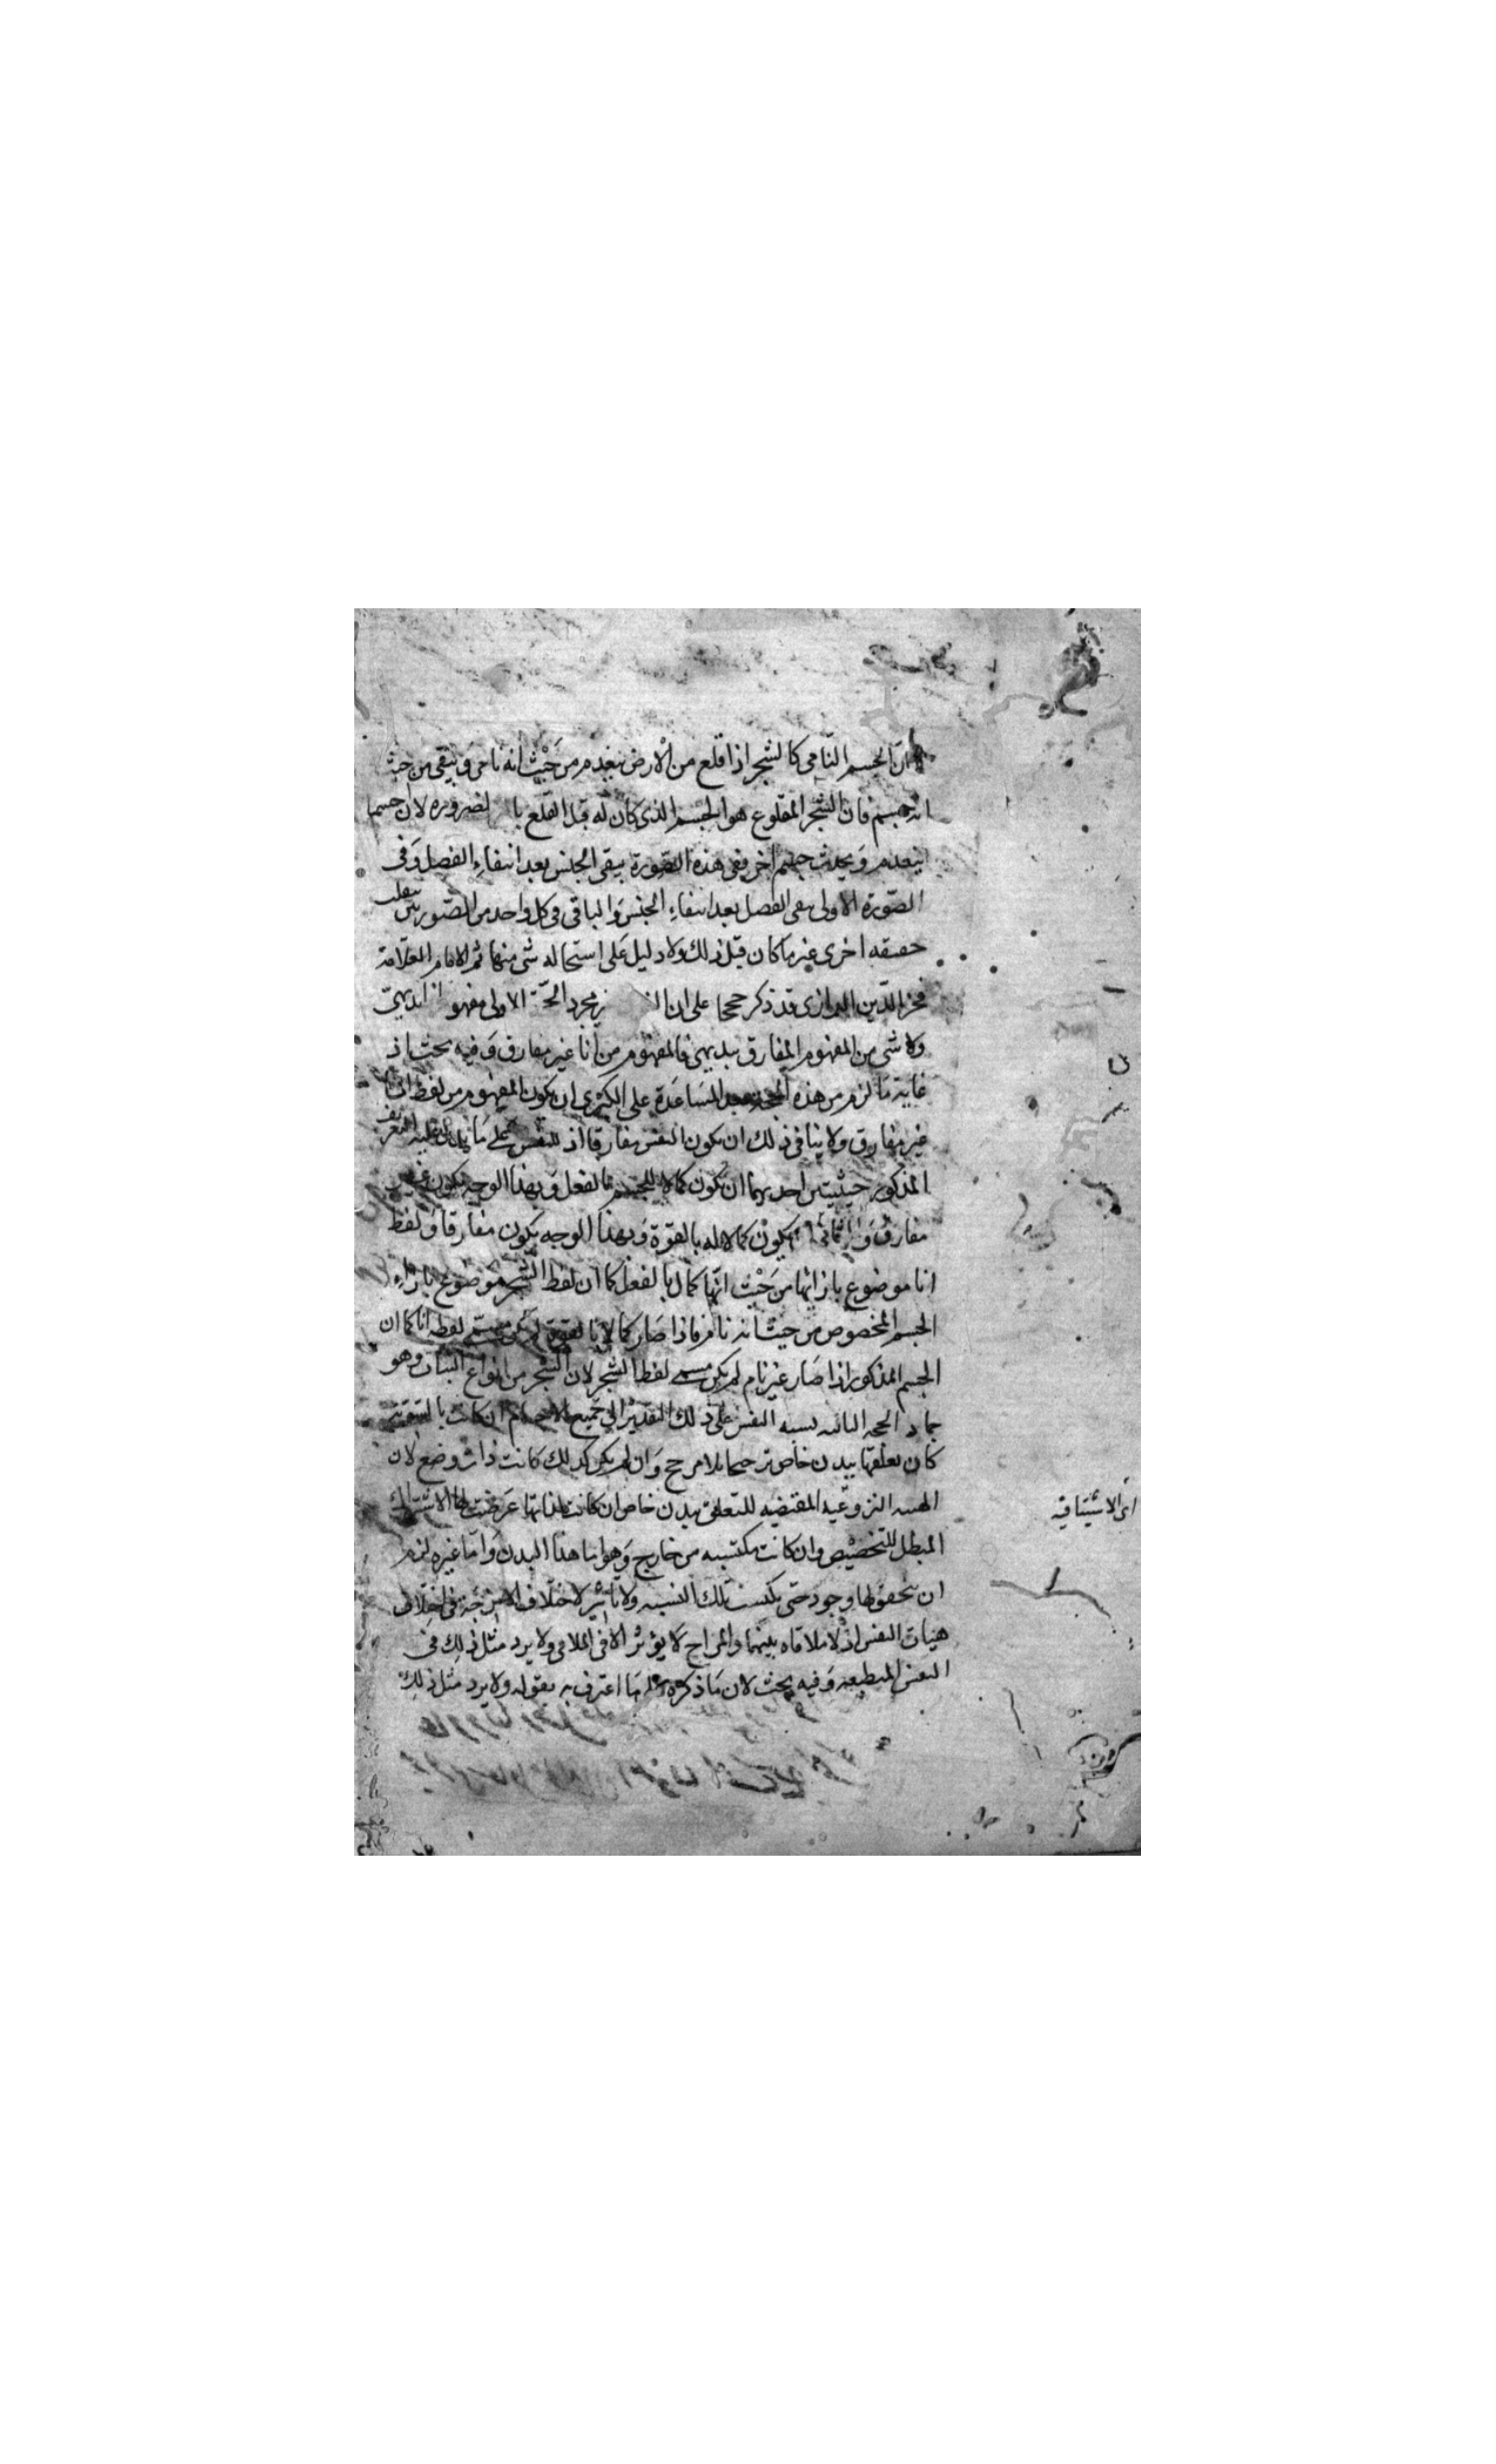 ان الجسم النامى كالشجر اذا قلع من الارض ينعدم من حيث انه نامى ويبقى من حيث
انه جسم فان الشجر المقلوع هو الجسم الذى كان له قبل القلع بالضروره لا ان جسما
ينعدم ويحدث جسم اخر وفى هذه الصورة يبقى الجنس بعد انتفاء الفصل وفى
الصورة الاولى يبقى الفصل بعد انتفاء الجنس والباقى فى كل واحد من الصورتين ينقلب
حقيقه اخرى غير ما كان قبل ذلك ولا دليل على استحاله شى منها ثم الامام العلامة
فخر الدين الرازى قد ذكر حججا على ان مجرد الاولى مفهوم انا بديهى
ولا شى من المفهوم المفارق ببديهى فالمفهوم من انا غير مفارق وفيه بحث اذ
غاية ما لزم من هذه الحجة بعد المساعدة على الكبرى ان يكون المفهوم من لفظ انا
غير مفارق ولا ينافى ذلك ان يكون النفس مفارقا اذ للنفس على ما يدل عليه التعريف
المذكور حيثيتين احديهما ان يكون كمالا للجسم بالفعل وبهذا الوجه يكون غير
مفارق والثانى ان يكون كمالا له بالقوة وبهذا الوجه يكون مفارقا ولفظ
انا موضوع بازائها من حيث انها كمال بالفعل كما ان لفظ الشجر موضوع بازاء
الجسم المخصوص من حيث انه نام فاذا صار كمالا بالقوة لم يكن مسمى لفظه انا كما ان
الجسم المذكور اذا صار غير نام لم يكن مسمى لفظ الشجر لان الشجر من انواع النبات وهو
جماد الحجه الثانيه نسبه النفس على ذلك التقدير الى جميع الاجسام ان كانت بالسوية
كان تعلقها ببدن خاص ترجيحا بلا مرجح وان لم يكن كذلك كانت ذات وضع لان
الهيئه النزوعيه المقتضيه للتعلق ببدن خاص ان كانت لذاتها عرضت لها الاشتراك
اى الاشتياقيه
المبطل للتخصيص وان كانت مكتسبه من خارج وهو اما هذا البدن واما غيره لزم
ان تحقق لها وجود حتى يكتسب تلك النسبه ولا تاثير لاختلاف الامزجة فى اختلاف
هيات النفس اذ لا ملاقاه بينهما والمزاج لا يؤثر الا فى الملاقى ولا يرد مثل ذلك فى
النفس المنطبعه وفيه بحث لان ما ذكره اعترف به بقوله ولا يرد مثل ذلك